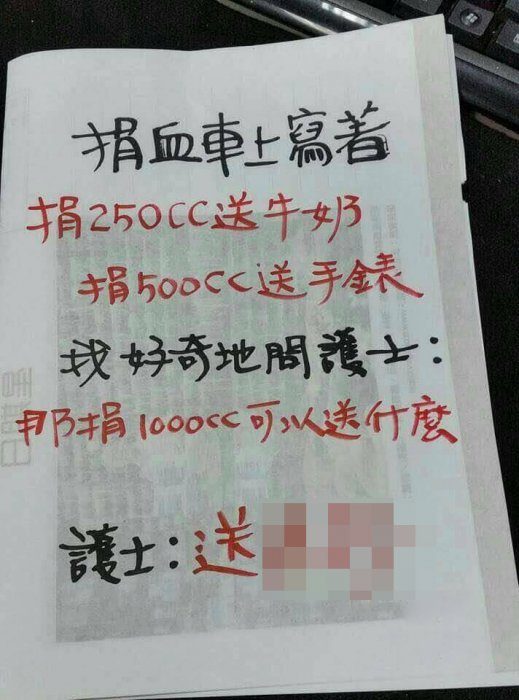 捐血車上寫著
捐250CC送牛奶
捐500CC送手錶
我好奇地問護士:
那捐1000cc可以送什麼
護士:送